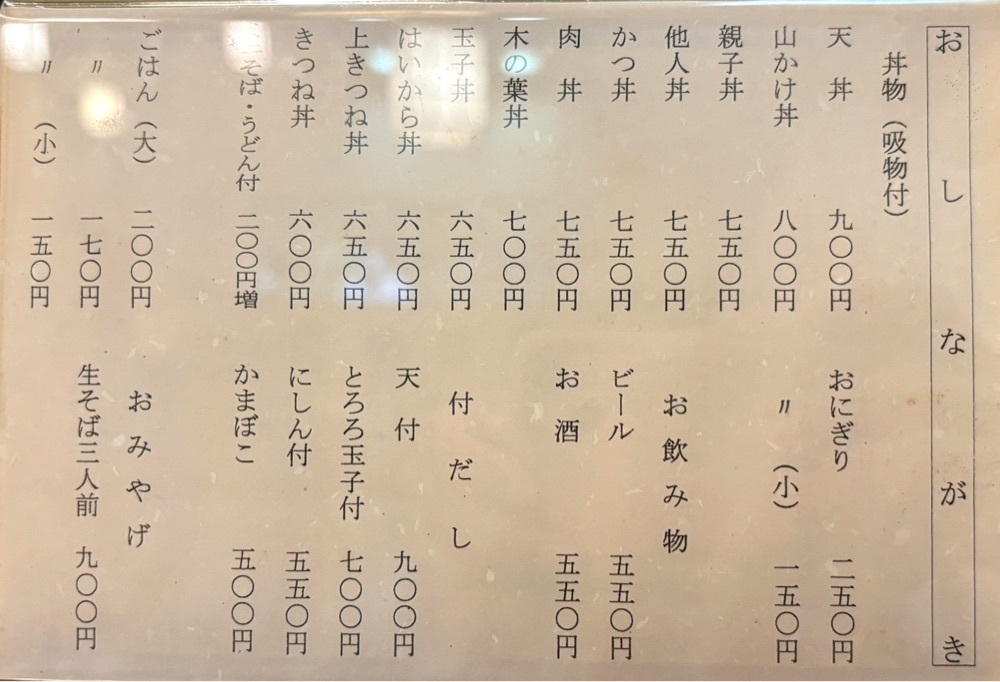 おしながき
丼物（吸物付）
天丼 九〇〇円
山かけ丼 八〇〇円
親子丼 七五〇円
他人丼 七五〇円
かつ丼 七五〇円
肉丼 七五〇円
木の葉丼 七〇〇円
玉子丼 六五〇円
はいから丼 六五〇円
上きつね丼 六五〇円
きつね丼 六〇〇円
そば・うどん付 二〇〇円増
ごはん（大） 二〇〇円
〃 一七〇円
〃（小） 一五〇円
おにぎり 二五〇円
〃（小） 一五〇円
お飲み物
ビール 五五〇円
お酒 五五〇円
付だし
天付 九〇〇円
とろろ玉子付 七〇〇円
にしん付 五五〇円
かまぼこ 五〇〇円
おみやげ
生そば三人前 九〇〇円